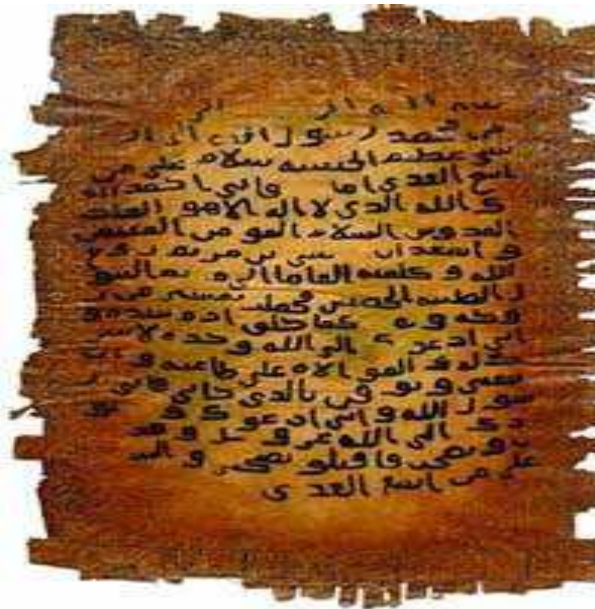 بسم الله الر الر
من محمد رسول الله الى ال
عظيم الحبشة سلام على من
اتبع الهدى اما فاني احمد الي
ك الله الذي لا اله الا هو الملك
القدوس السلام المومن المهيمن
و اشهد ان عيسى بن مريم روح
الله و كلمته القاها الى مريم البتو
ل الطيبة الحصينة فحملت بعيسى من ر
وحه و كما خلق ادم بيده و
اني ادعوك الى الله وحده لا شر
يك له و الموالاه على طاعته و ان
تتبعني و توقن بالذي جاني فاني ر
سول الله و اني ادعوك و جنو
دك الى الله عز و جل و قد
و نصحت فاقبلو نصحي و السلام
على من اتبع الهدى